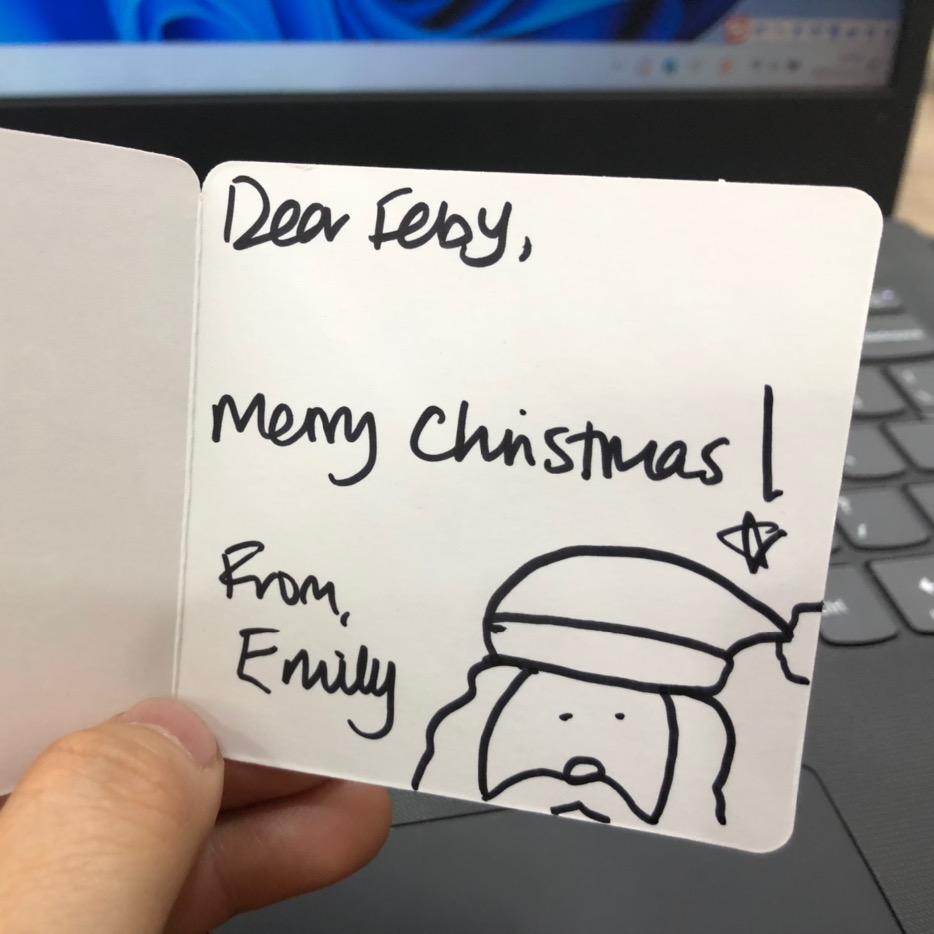 Dear Feby,
Merry Christmas!
From,
Emily